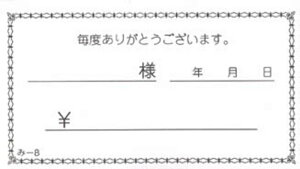 毎度ありがとうございます。
様 年 月 日
¥
み－8